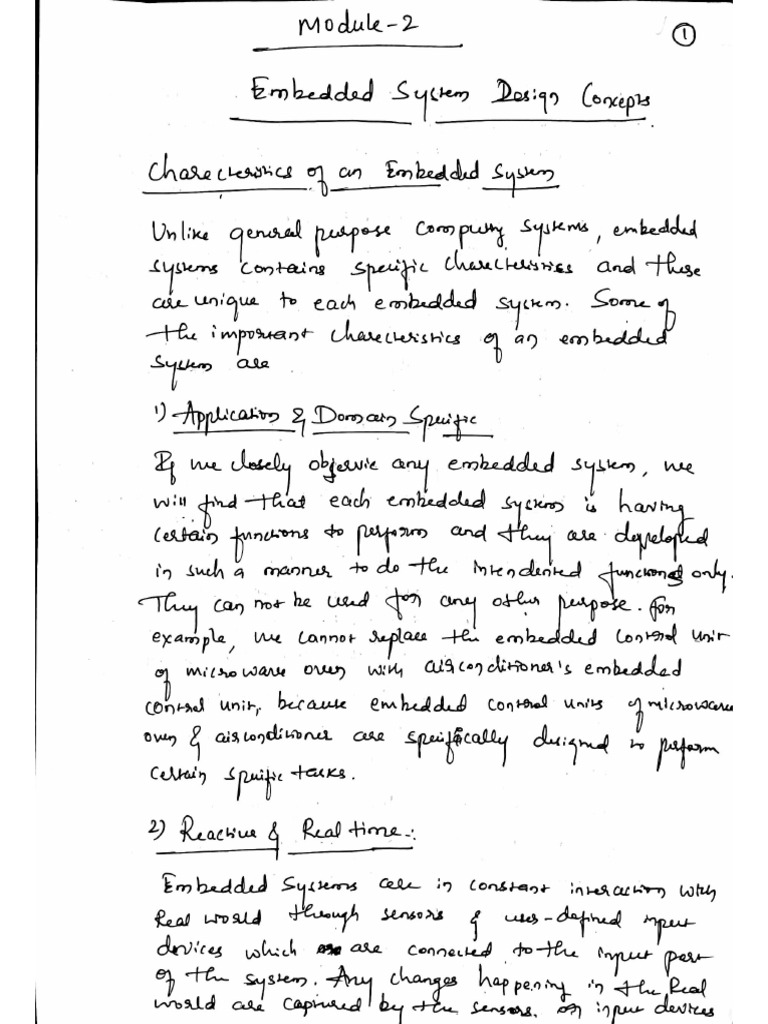 Module-2
1
Embedded System Design Concepts
Charecteristics of an Embedded System
Unlike general purpose computing systems, embedded
systems contains specific charecteristics and these
are unique to each embedded system. Some of
the important charecteristics of an embedded
system are
1) Application & Domain Specific
If we closely observie any embedded system, we
will find that each embedded system is having
certain functions to perform and they are developed
in such a manner to do the intendented functions only.
They can not be used for any other purpose. For
example, we cannot replace the embedded control unit
of microwave oven with airconditioner's embedded
control unit, because embedded control units of microwave
oven & airconditioner are specifically designed to perform
certain specific tasks.
2) Reactive & Real time:
Embedded Systems are in constant interaction with
Real world through sensors & user-defined input
devices which are connected to the input port
of the system. Any changes happening in the Real
world are captured by the sensors or input devices